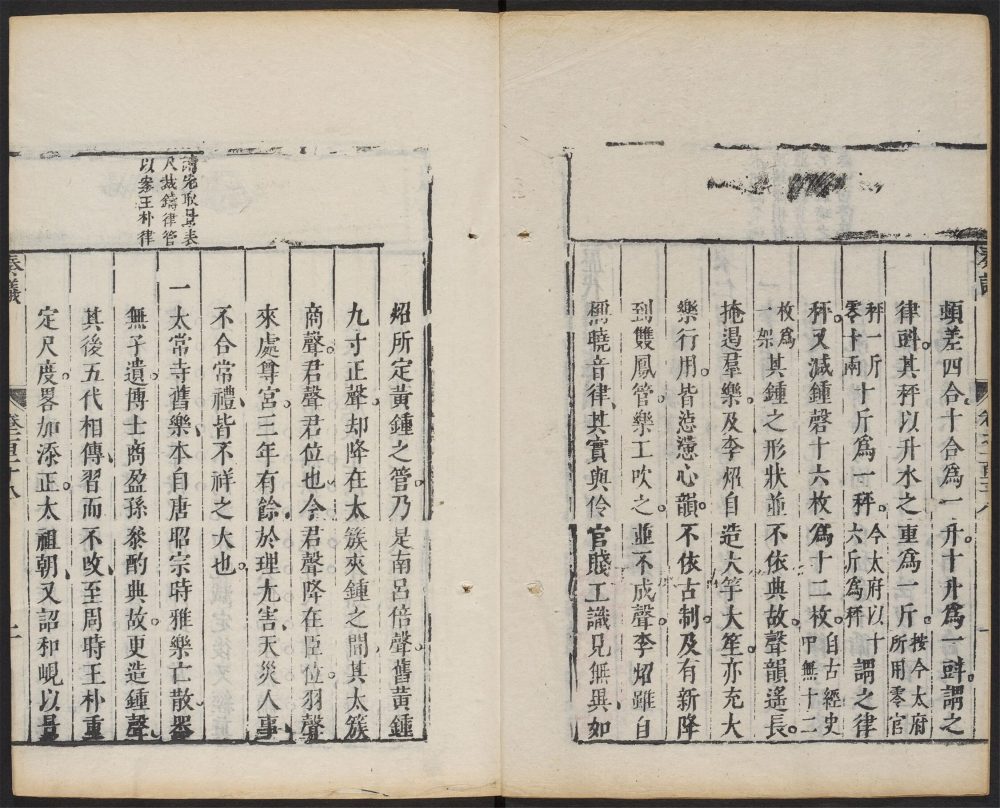 頓差四合十合爲一升十升爲一㪷謂之
律㪷其秤以升水之重爲一斤按今太府所用零官
秤一斤零十兩十斤爲一秤今太府以十六斤爲秤謂之律
秤又減鍾磬十六枚爲十二枚自古經史曱無十二
枚爲一架其鍾之形狀並不依典故聲韻遙長
掩遏羣樂及李炤自造大竽大笙亦充大
樂行用皆惉懘心韻不依古制及有新降
到雙鳳管樂工吹之並不成聲李炤雖自
稱曉音律其實與伶官賤工識見無異如
炤所定黃鍾之管乃是南呂倍聲舊黃鍾
九寸正聲却降在太簇夾鍾之間其太簇
商聲君聲君位也今君聲降在臣位羽聲
來處尊宮三年有餘於理尤害天災人事
不合常禮皆不祥之大也
一太常寺舊樂本自唐昭宗時雅樂亡散器
無孑遺博士商盈孫叅酌典故更造鍾聲
其後五代相傳習而不攺至周時王朴重
定尺度畧加添正太祖朝又詔和峴以景
請先取景表
尺裁鑄律管
以叅王朴律
奏議